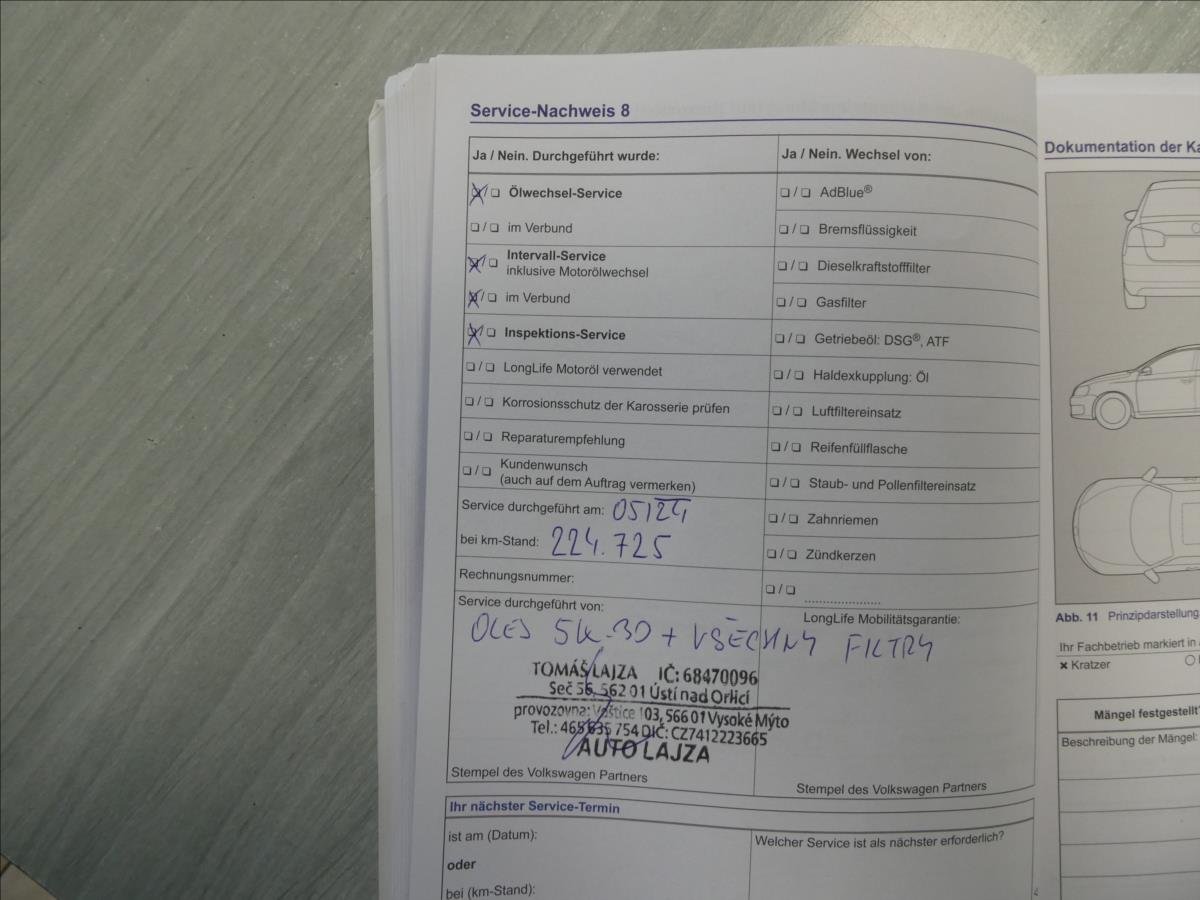 Service-Nachweis 8
Ja / Nein. Durchgeführt wurde:
❏ / ❏ Ölwechsel-Service
❏ / ❏ im Verbund
❏ / ❏ Intervall-Service
inklusive Motorölwechsel
❏ / ❏ im Verbund
❏ / ❏ Inspektions-Service
❏ / ❏ LongLife Motoröl verwendet
❏ / ❏ Korrosionsschutz der Karosserie prüfen
❏ / ❏ Reparaturempfehlung
❏ / ❏ Kundenwunsch
(auch auf dem Auftrag vermerken)
Service durchgeführt am: 05/24
bei km-Stand: 224.725
Rechnungsnummer:
Ja / Nein. Wechsel von:
❏ / ❏ AdBlue®
❏ / ❏ Bremsflüssigkeit
❏ / ❏ Dieselkraftstofffilter
❏ / ❏ Gasfilter
❏ / ❏ Getriebeöl: DSG®, ATF
❏ / ❏ Haldexkupplung: Öl
❏ / ❏ Luftfiltereinsatz
❏ / ❏ Reifenfüllflasche
❏ / ❏ Staub- und Pollenfiltereinsatz
❏ / ❏ Zahnriemen
❏ / ❏ Zündkerzen
❏ / ❏ ......................
Service durchgeführt von:
LongLife Mobilitätsgarantie:
OLEJ 5W-30 + VŠECHNY FILTRY
TOMÁŠ LAJZA IČ: 68470096
Seč 56, 562 01 Ústí nad Orlicí
provozovna: 103, 566 01 Vysoké Mýto
Tel.: 465 635 754 DIČ: CZ7412223665
AUTO LAJZA
Stempel des Volkswagen Partners
Stempel des Volkswagen Partners
Ihr nächster Service-Termin
ist am (Datum):
oder
bei (km-Stand):
Welcher Service ist als nächster erforderlich?
Dokumentation der
Abb. 11 Prinzipdarstellung
Ihr Fachbetrieb markiert in
✖ Kratzer
Mängel festgestellt?
Beschreibung der Mängel: